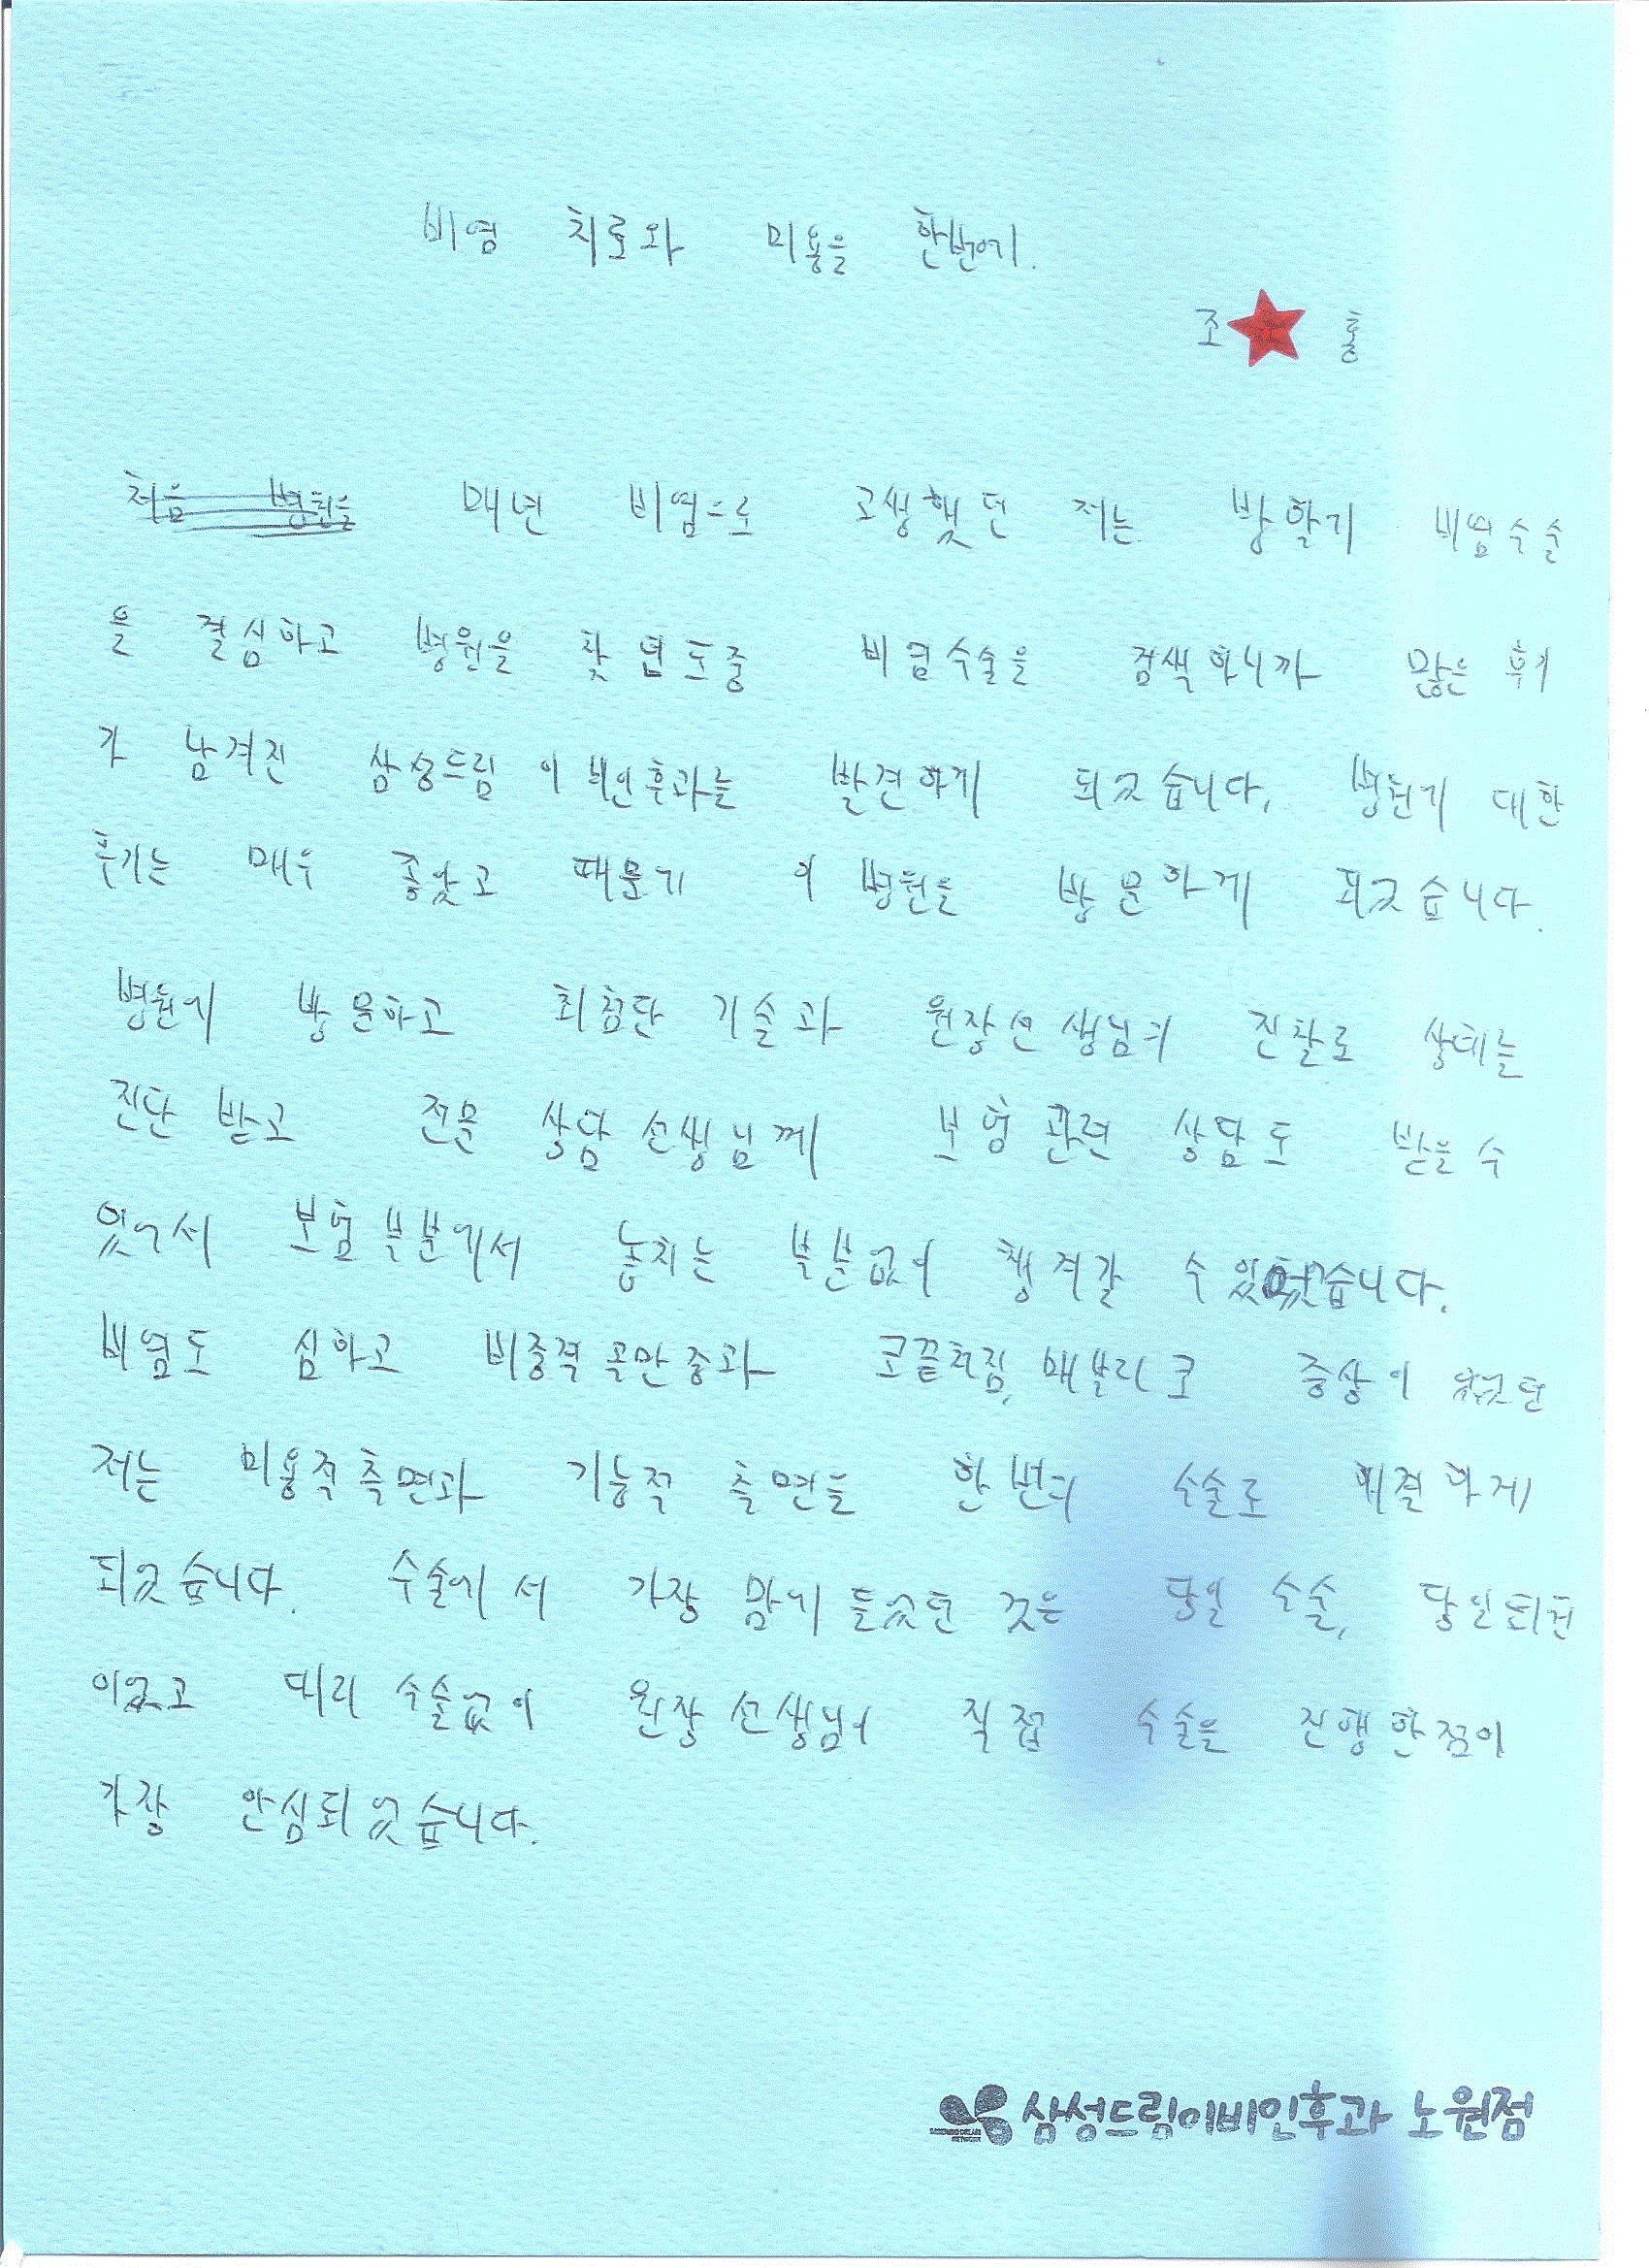 비염 치료와 미용을 한번에.
조 흠
처음 병원을 매년 비염으로 고생했던 저는 방학에 비염수술
을 결심하고 병원을 찾던도중 비염수술을 검색하니까 많은 후기
가 남겨진 삼성드림 이비인후과를 발견하게 되었습니다. 병원에 대한
후기는 매우 좋았고 때문에 이 병원을 방문하게 되었습니다.
병원에 방문하고 최첨단 기술과 원장선생님의 진찰로 상태를
진단 받고 전문 상담 선생님께 보험 관련 상담도 받을 수
있어서 보험 부분에서 놓치는 부분없이 챙겨갈 수 있었습니다.
비염도 심하고 비중격 만곡증과 코끝처짐, 매부리코 증상이 있었던
저는 미용적 측면과 기능적 측면을 한번의 수술로 해결하게
되었습니다. 수술에서 가장 맘에 들었던 것은 당일 수술, 당일퇴원
이었고 대리 수술없이 원장 선생님이 직접 수술을 진행한점이
가장 안심되었습니다.
삼성드림이비인후과 노원점